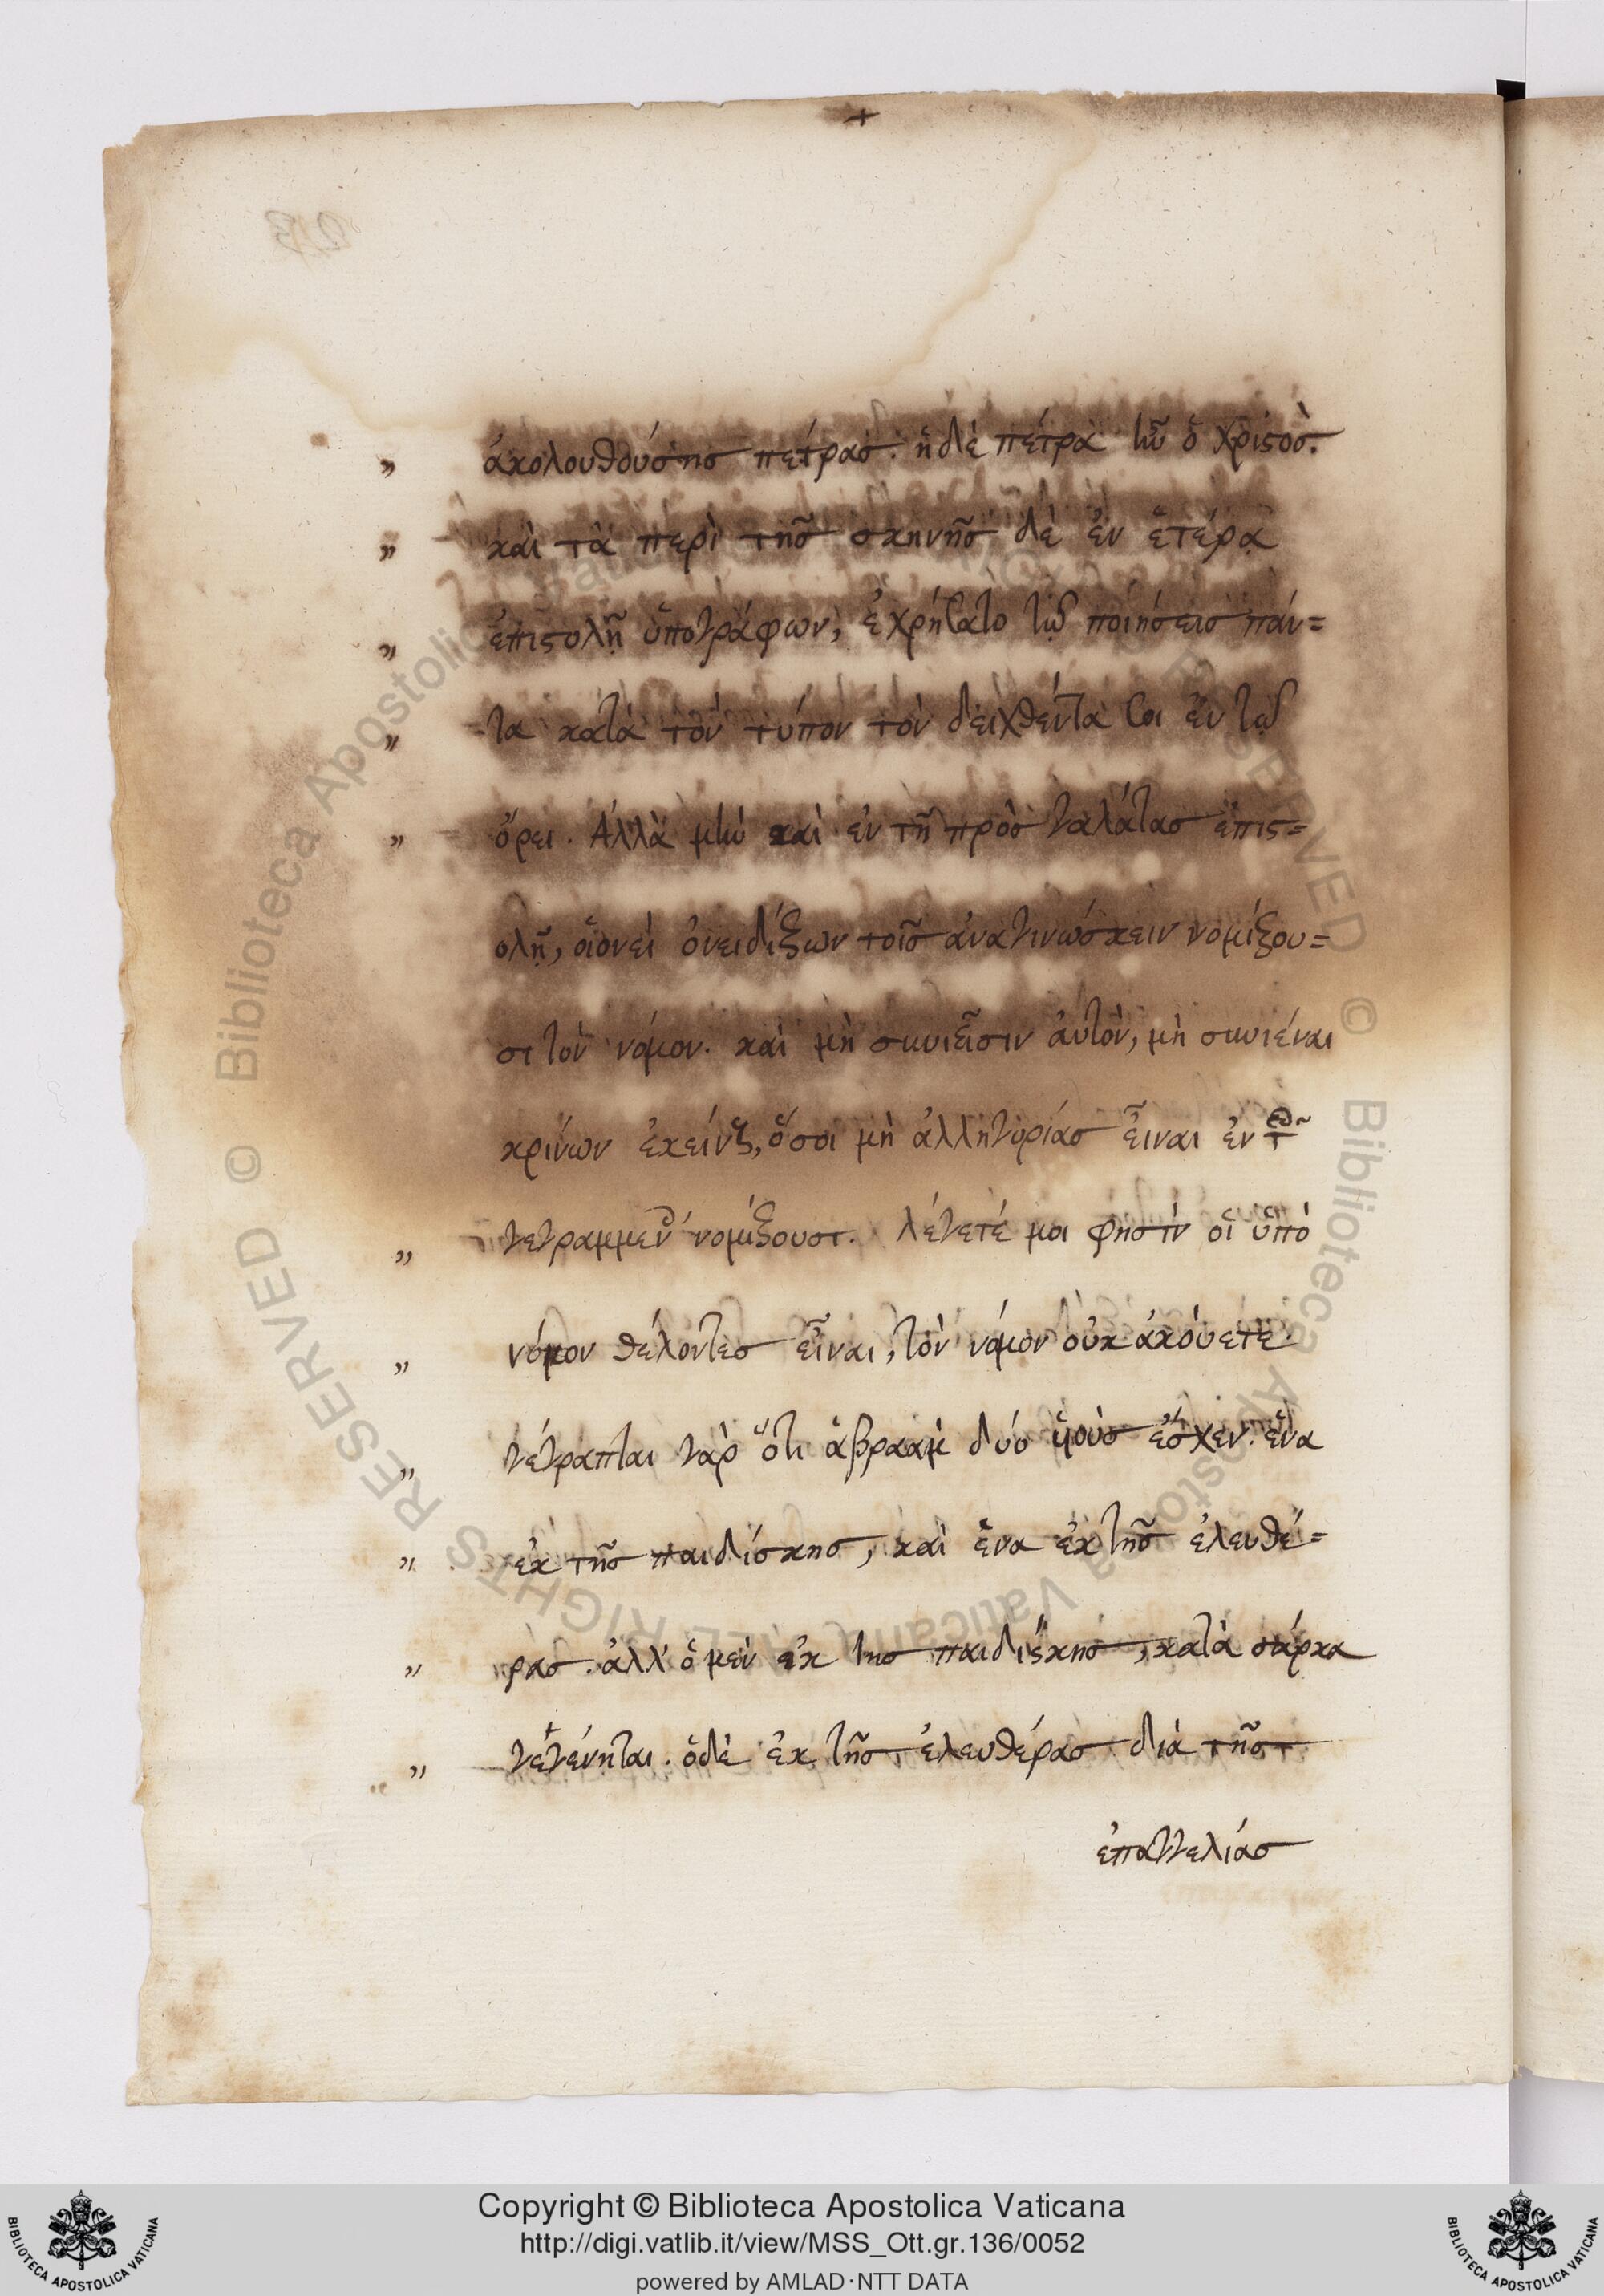 ἀκολουθούσης πέτρας. ἡ δὲ πέτρα ἦν ὁ χριστὸς.
καὶ τὰ περὶ τῆς σκηνῆς δὲ ἐν ἑτέρᾳ
ἐπιστολῇ ὑπογράφων, ἐχρήσατο τῷ ποιήσεις πάν=
τα κατὰ τὸν τύπον τὸν δειχθέντα σοι ἐν τῷ
ὄρει. Ἀλλὰ μὴν καὶ ἐν τῇ πρὸς γαλάτας ἐπισ=
τολῇ, οἱονεὶ ὀνειδίζων τοῖς ἀναγινώσκειν νομίζου=
σι τὸν νόμον. καὶ μὴ συνιεῖσιν αὐτὸν, μὴ συνιέναι
κρίνων ἐκείνους, ὅσοι μὴ ἀλληγορίας εἶναι ἐν τοῖς
γεγραμμένοις νομίζουσι. λέγετέ μοι φησὶν οἱ ὑπὸ
νόμον θέλοντες εἶναι, τὸν νόμον οὐκ ἀκούετε.
γέγραπται γὰρ ὅτι ἀβραὰμ δύο υἱοὺς ἔσχεν. ἕνα
ἐκ τῆς παιδίσκης, καὶ ἕνα ἐκ τῆς ἐλευθέ=
ρας. ἀλλ' ὁ μὲν ἐκ της παιδίσκης, κατὰ σάρκα
γεγένηται. ὁ δὲ ἐκ τῆς ἐλευθέρας διὰ τῆς
ἐπαγγελίας
Copyright © Biblioteca Apostolica Vaticana
http://digi.vatlib.it/view/MSS_Ott.gr.136/0052
powered by AMLAD·NTT DATA